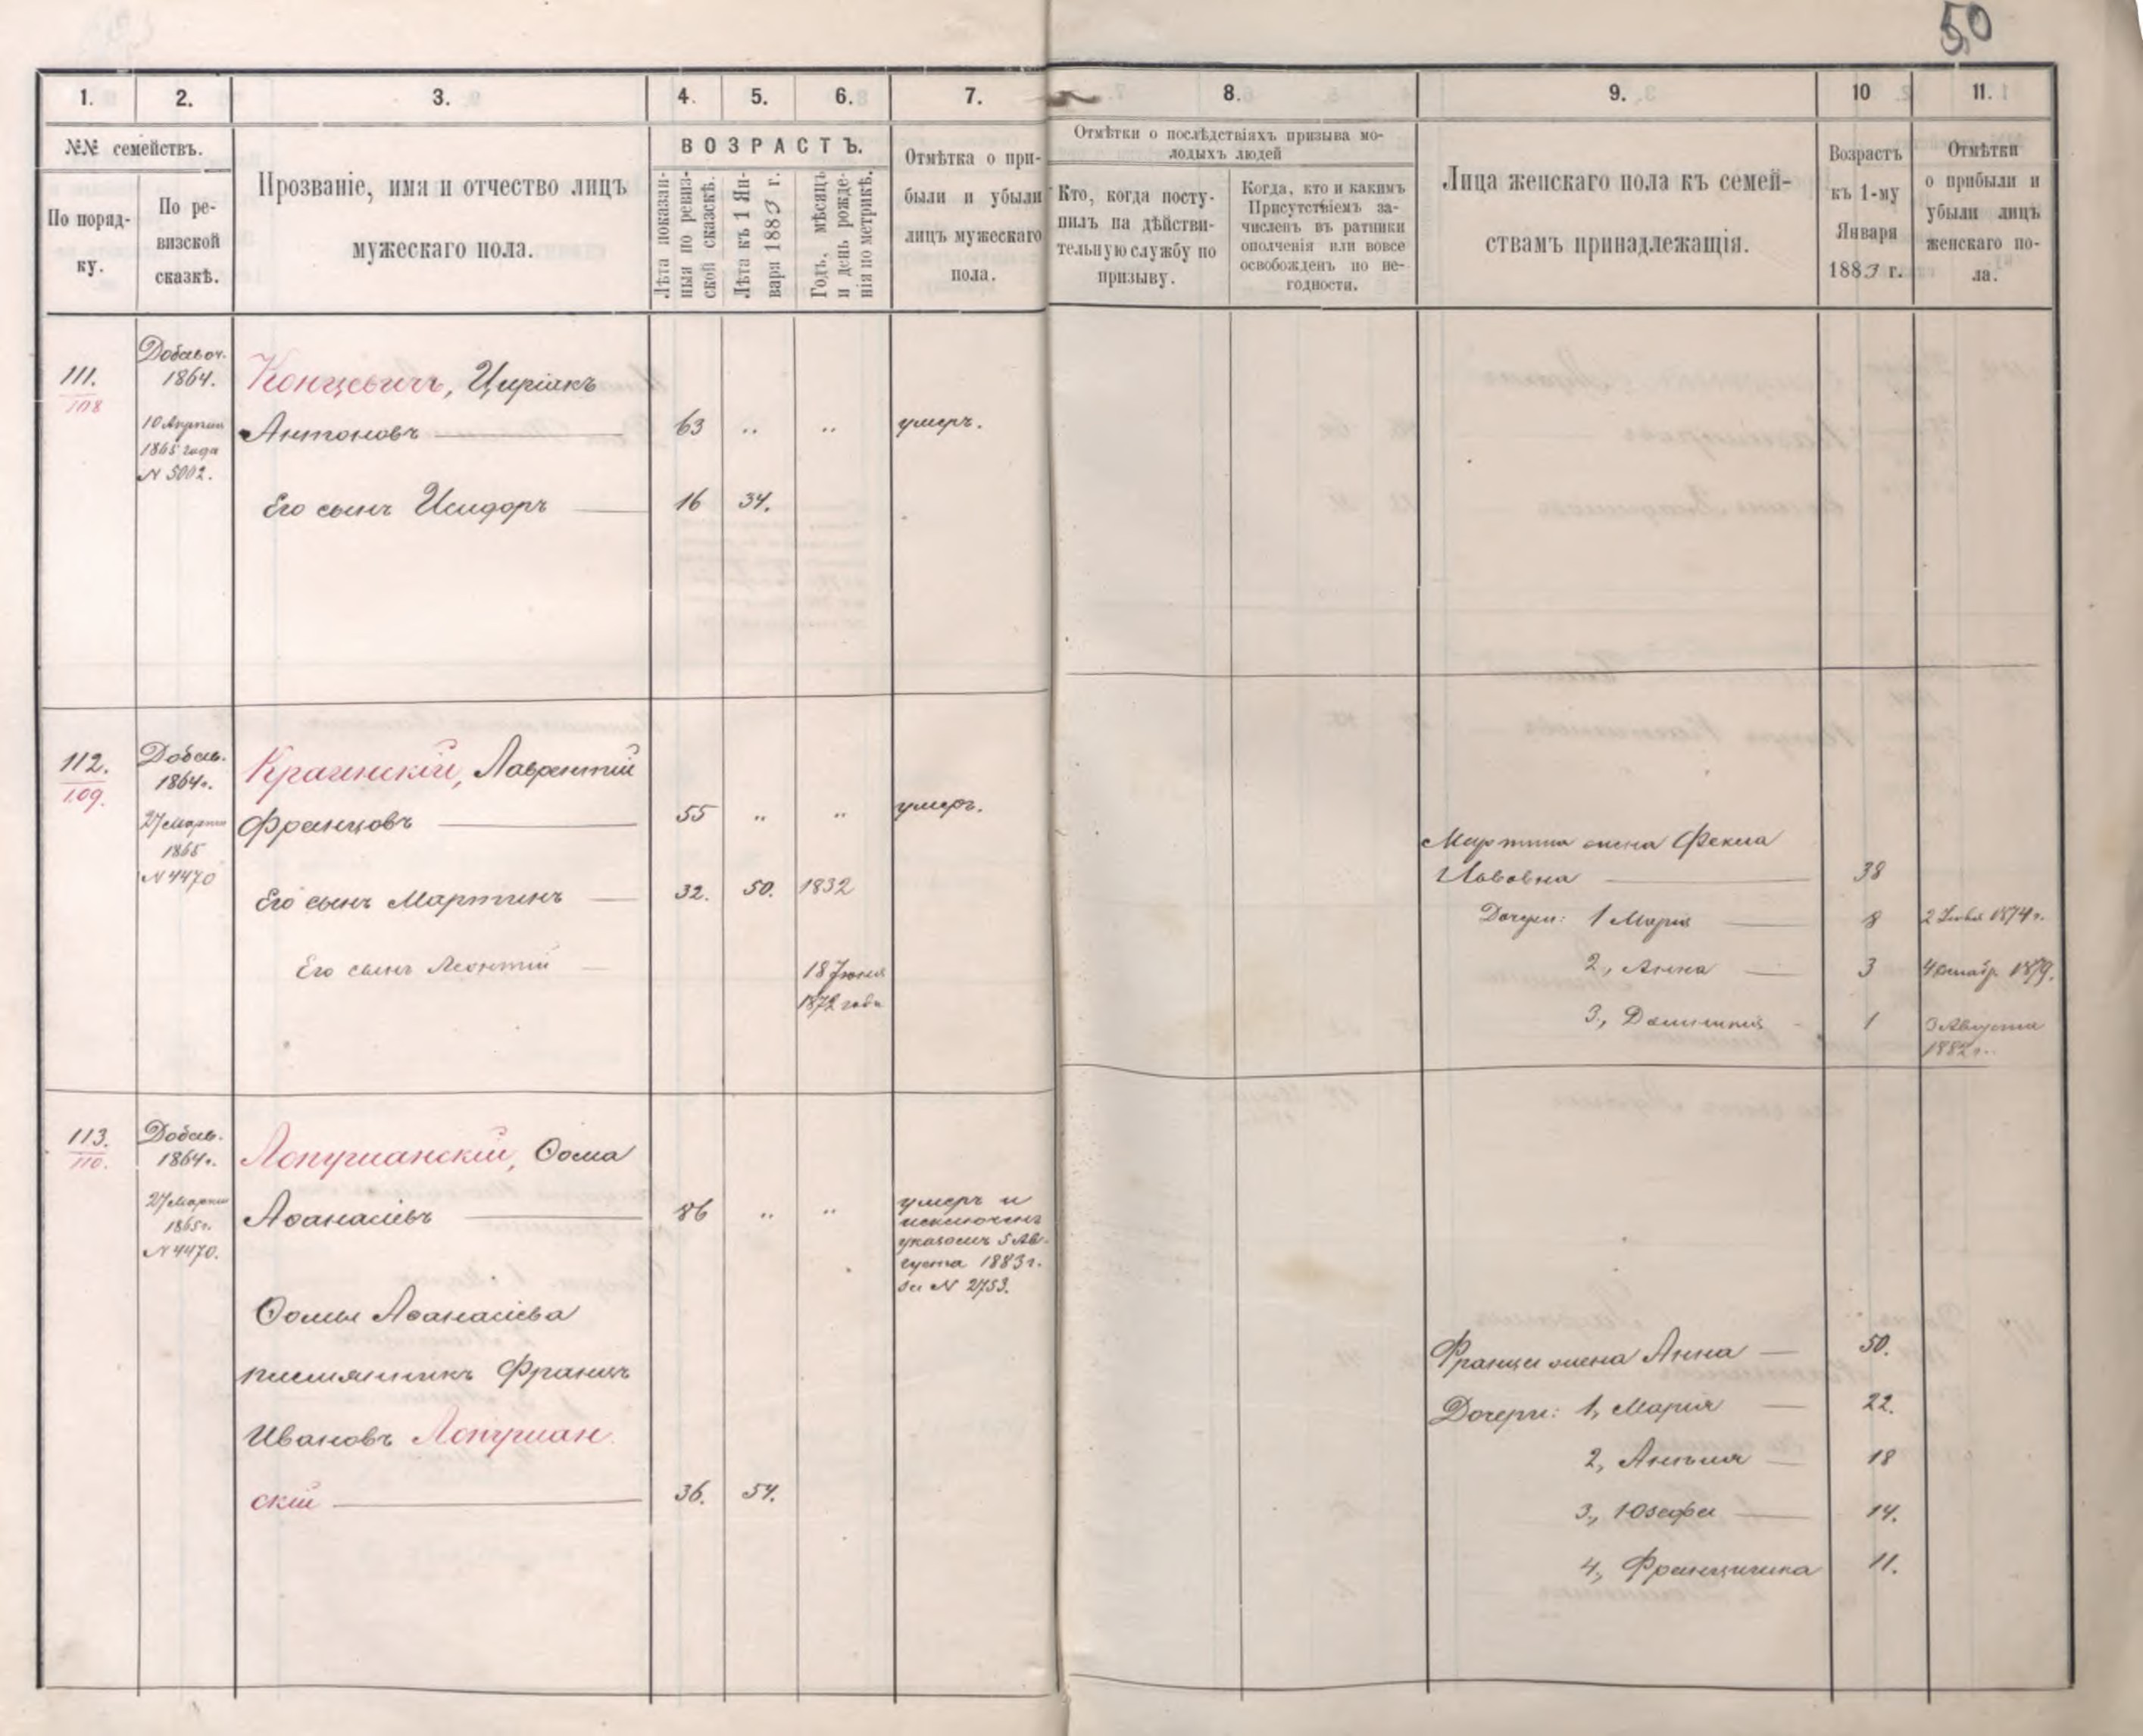 50
1. 2. 3. 4. 5. 6. 7. 8. 9. 10 11.
№№ семействъ.
По поряд-
ку.
По ре-
визской
сказкѣ.
Прозваніе, имя и отчество лицъ
мужескаго пола.
ВОЗРАСТЪ.
Лѣта показан-
ныя по ревиз-
ской сказскѣ.
Лѣта къ 1 Ян-
варя 1883 г.
Годъ, мѣсяцъ
и день рожде-
нія по метрикѣ.
Отмѣтка о при-
были и убыли
лицъ мужескаго
пола.
Отмѣтки о послѣдствіяхъ призыва мо-
лодыхъ людей
Кто, когда посту-
пилъ на дѣйстви-
тельную службу по
призыву.
Когда, кто и какимъ
Присутствіемъ за-
численъ въ ратники
ополченія или вовсе
освобожденъ по не-
годности.
Лица женскаго пола къ семей-
ствамъ принадлежащія.
Возрастъ
къ 1-му
Января
1883 г.
Отмѣтки
о прибыли и
убыли лицъ
женскаго по-
ла.
111.
108
Добавоч.
1864.
10 Апрѣля
1865 года
№ 5002.
Концевичъ, Циріакъ
Антоновъ 63 .. .. умеръ.
Его сынъ Исидоръ 16 34.
112.
109.
Добав.
1864г.
27 Марта
1865
№ 4470
Краинскій, Лаврентій
Францовъ 55 .. .. умеръ.
Его сынъ Мартинъ 32. 50. 1832
Его сынъ Леонтій 18 Іюня
1872 года
Мартина жена Фекла
Львовна 38
Дочери: 1 Марія 8 2 1874 г.
2, Анна 3 1879.
3, 1 3 Августа
1882 г.
113.
110.
Добав.
1864г.
27 Марта
1865г.
№ 4470.
Лопушанскій, Ѳома
Аѳанасіевъ 86 .. .. умеръ и
исключенъ
указомъ 5 Ав-
густа 1883 г.
за № 2753.
Ѳомы Аѳанасіева
племянникъ Францъ
Ивановъ Лопушан
скій 36. 54.
Франца жена Анна 50.
Дочери: 1, Марія 22.
2, 18
3, Юзефа 14.
4, Францишка 11.